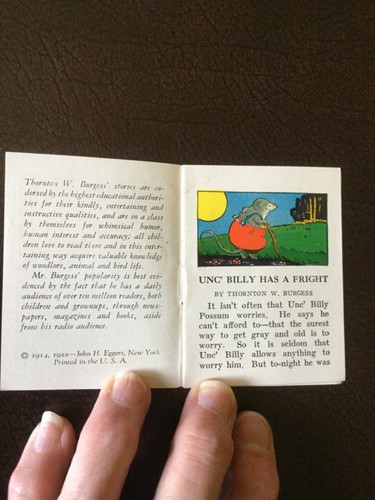 Thornton W. Burgess' stories are en-
dorsed by the highest educational authori-
ties for their kindly, entertaining and
instructive qualities, and are in a class
by themselves for whimsical humor,
human interest and accuracy; all chil-
dren love to read them and in this enter-
taining way acquire valuable knowledge
of woodlore, animal and bird life.
Mr. Burgess' popularity is best evi-
denced by the fact that he has a daily
audience of over ten million readers, both
children and grownups, through news-
papers, magazines and books, aside
from his radio audience.
© 1914, 1922—John H. Eggers, New York
Printed in the U. S. A.
UNC' BILLY HAS A FRIGHT
BY THORNTON W. BURGESS
It isn't often that Unc' Billy
Possum worries. He says he
can't afford to—that the surest
way to get gray and old is to
worry. So it is seldom that
Unc' Billy allows anything to
worry him. But to-night he was